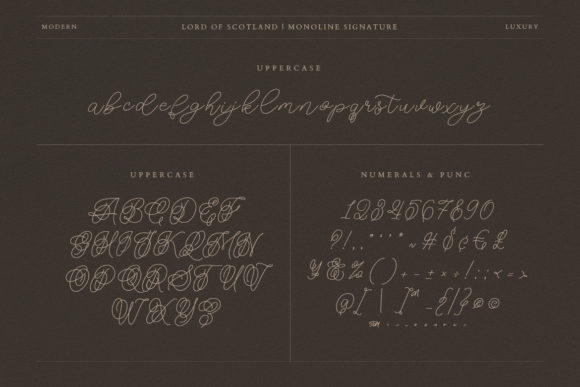 MODERN
LORD OF SCOTLAND | MONOLINE SIGNATURE
LUXURY
UPPERCASE
abcdefghijklmnopqrstuvwxyz
UPPERCASE
ABCDEF
GHIJKLMN
OPQRSTUV
WXYZ
NUMERALS & PUNC
1234567890
?!,.""''~#$¢€£
¥&%()+-±×÷!:;<=>
@[\]™_{|}©®